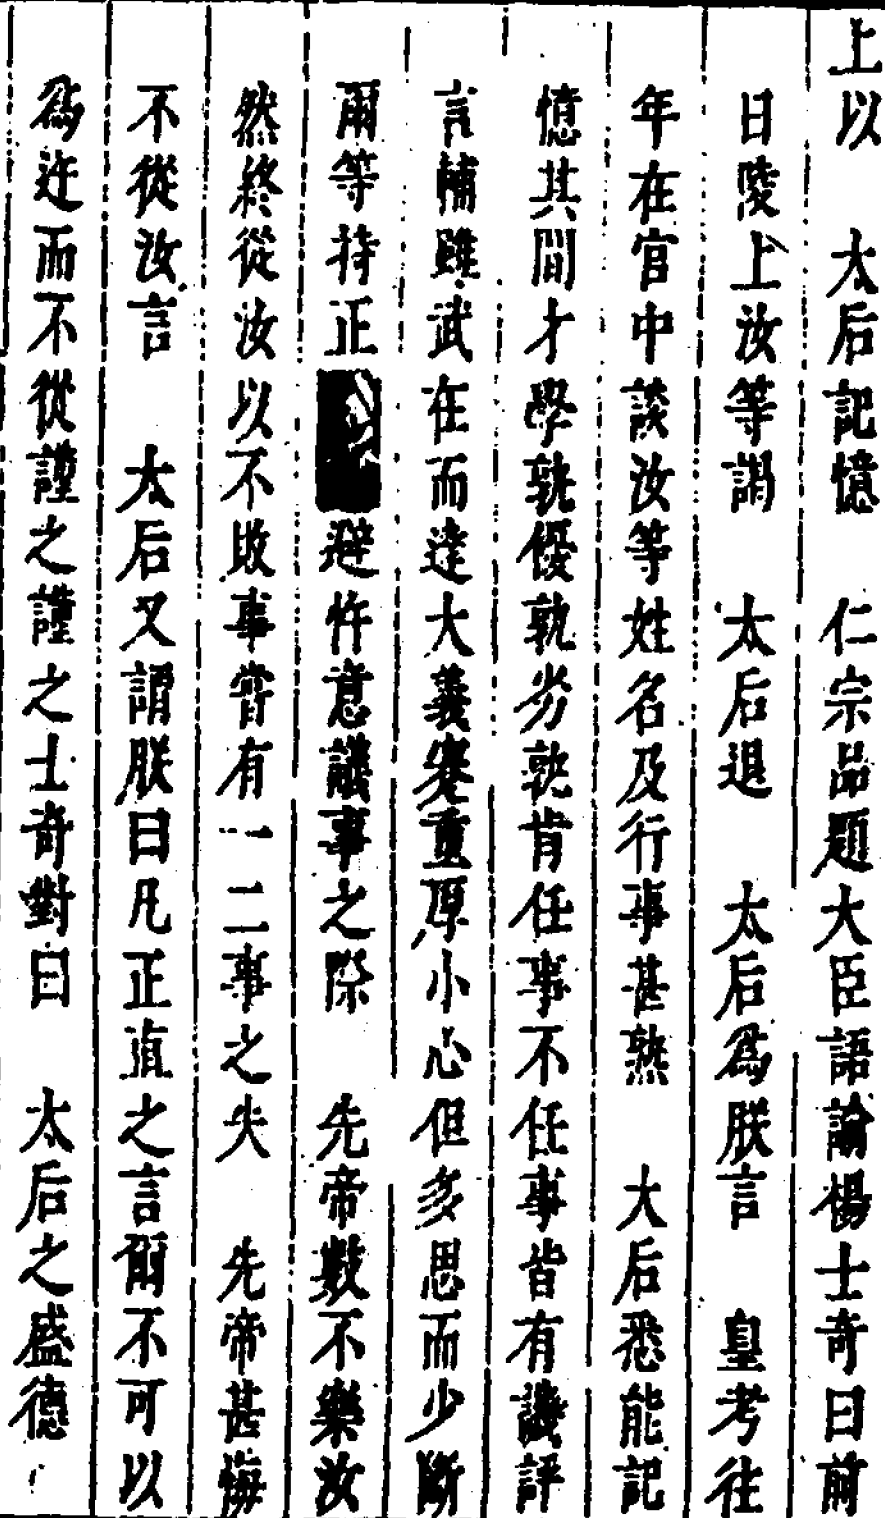 上以 太后記憶 仁宗品題大臣語諭楊士奇曰前
日陵上汝等謁 太后退 太后為朕言 皇考往
年在宮中談汝等姓名及行事甚熟 大后悉能記
憶其間才學孰優孰劣孰肯任事不任事皆有譏評
言輔雖武在而達大義蹇重厚小心但多思而少斷
爾等持正 避忤意議事之際 先帝數不樂汝
然終從汝以不敗事嘗有一二事之失 先帝甚悔
不從汝言 太后又謂朕曰凡正直之言爾不可以
為迕而不從謹之謹之士奇對曰 太后之盛德